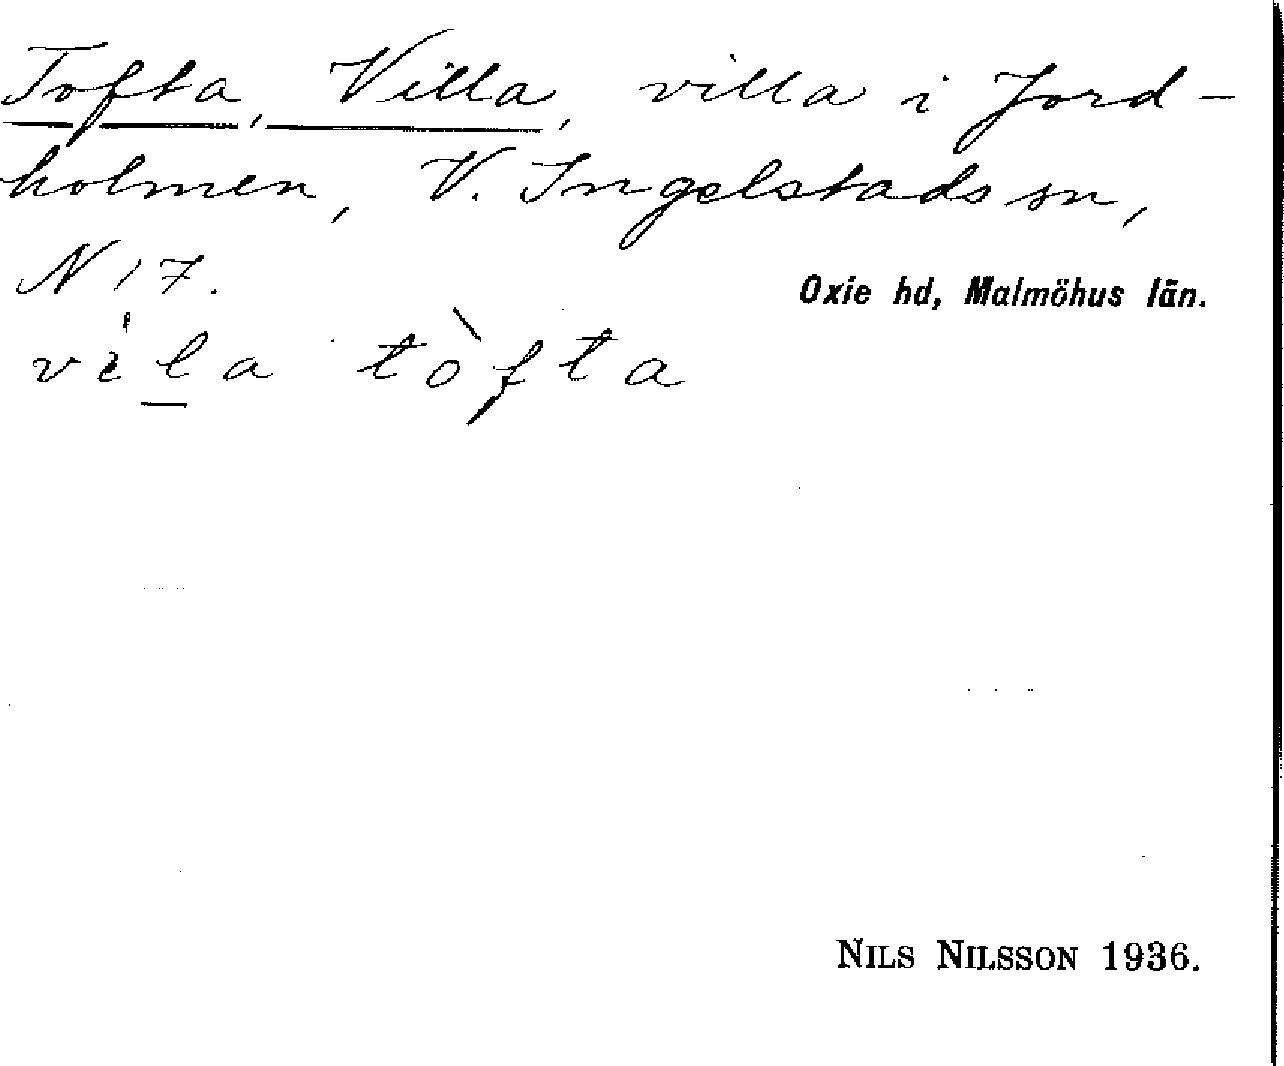 Tofta, Villa, villa i Jord-
holmen, V. Ingelstads sn,
N 17.
Oxie hd, Malmöhus län.
vila tòfta
NILS NILSSON 1936.